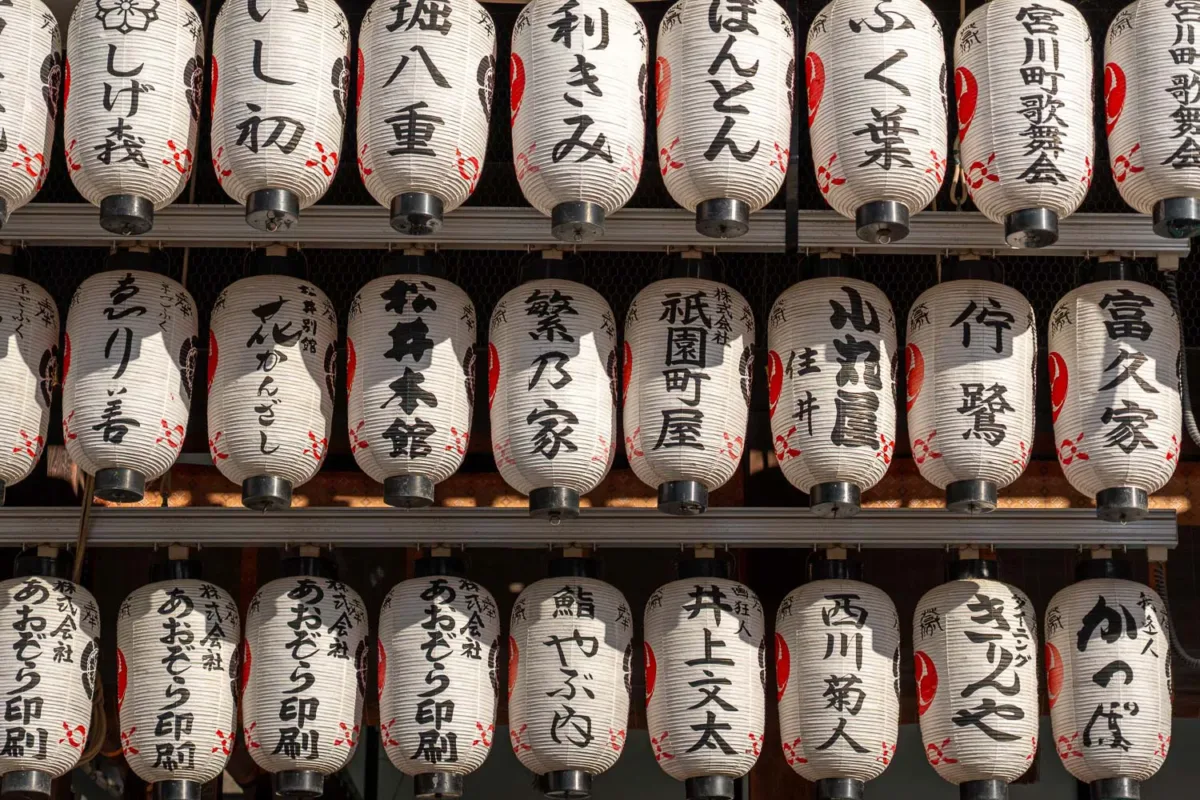 しげ義
いし初
堀八重
利きみ
ほんとん
ふく葉
宮川町歌舞会
宮川町歌舞会
ゑり善
松井別館
花かんざし
松井本館
繁乃家
株式会社
祇園町屋
小丸屋
住井
佇鷺
富久家
株式会社
あおぞら印刷
株式会社
あおぞら印刷
株式会社
あおぞら印刷
株式会社
あおぞら印刷
鮨やぶ内
画狂人
井上文太
西川菊人
ダイニング
きりんや
かつぼ